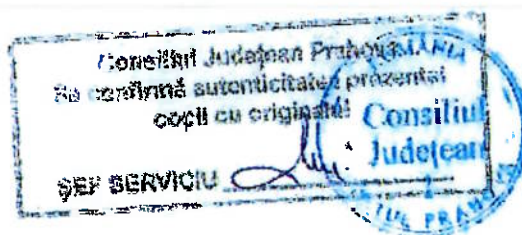 Consiliul Județean Prahova
Se confirmă autenticitatea prezentei
copii cu originalul
ȘEF SERVICIU
ROMÂNIA
Consiliul
Județean
1
JUDEȚUL PRAHOVA